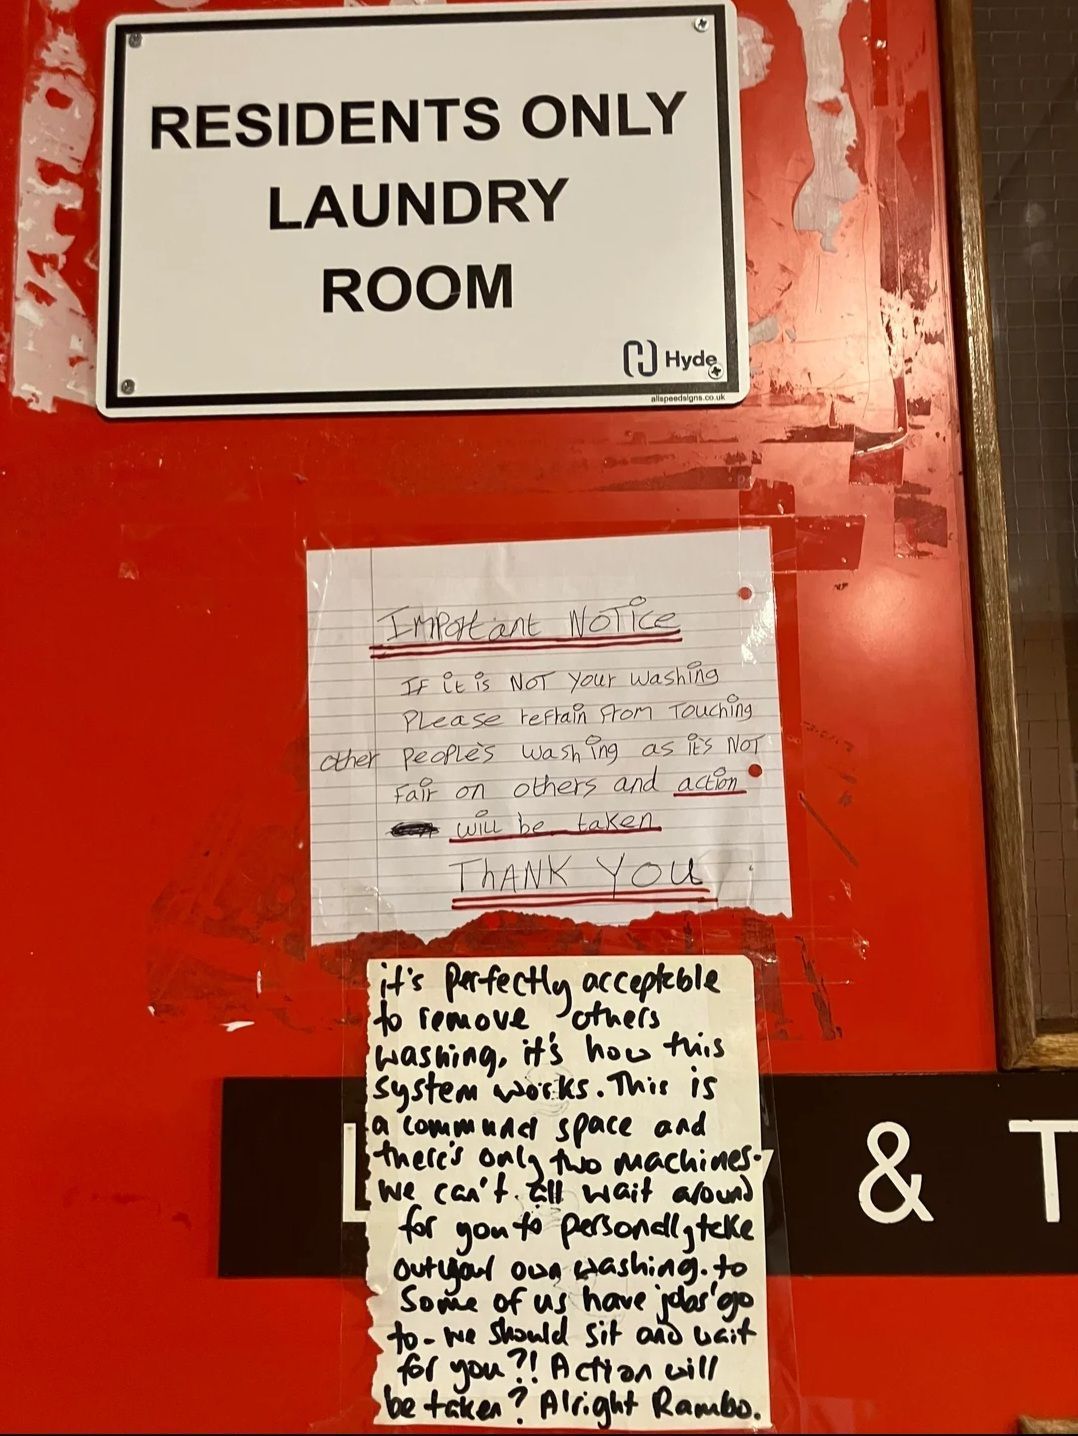 RESIDENTS ONLY
LAUNDRY
ROOM
Hyde
allspeedsigns.co.uk
IMPortant NOTice
IF it is NOT your washing
Please refrain from Touching
other People's washing as it's NOT
Fair on others and action
will be taken
THANK YOU
it's perfectly acceptable
to remove others
washing, it's how this
system works. This is
a communal space and
there's only two machines.
we can't all wait around
for you to personally take
out your own washing. to
Some of us have 'jobs' go
to - we should sit and wait
for you?! Action will
be taken? Alright Rambo.
L & T